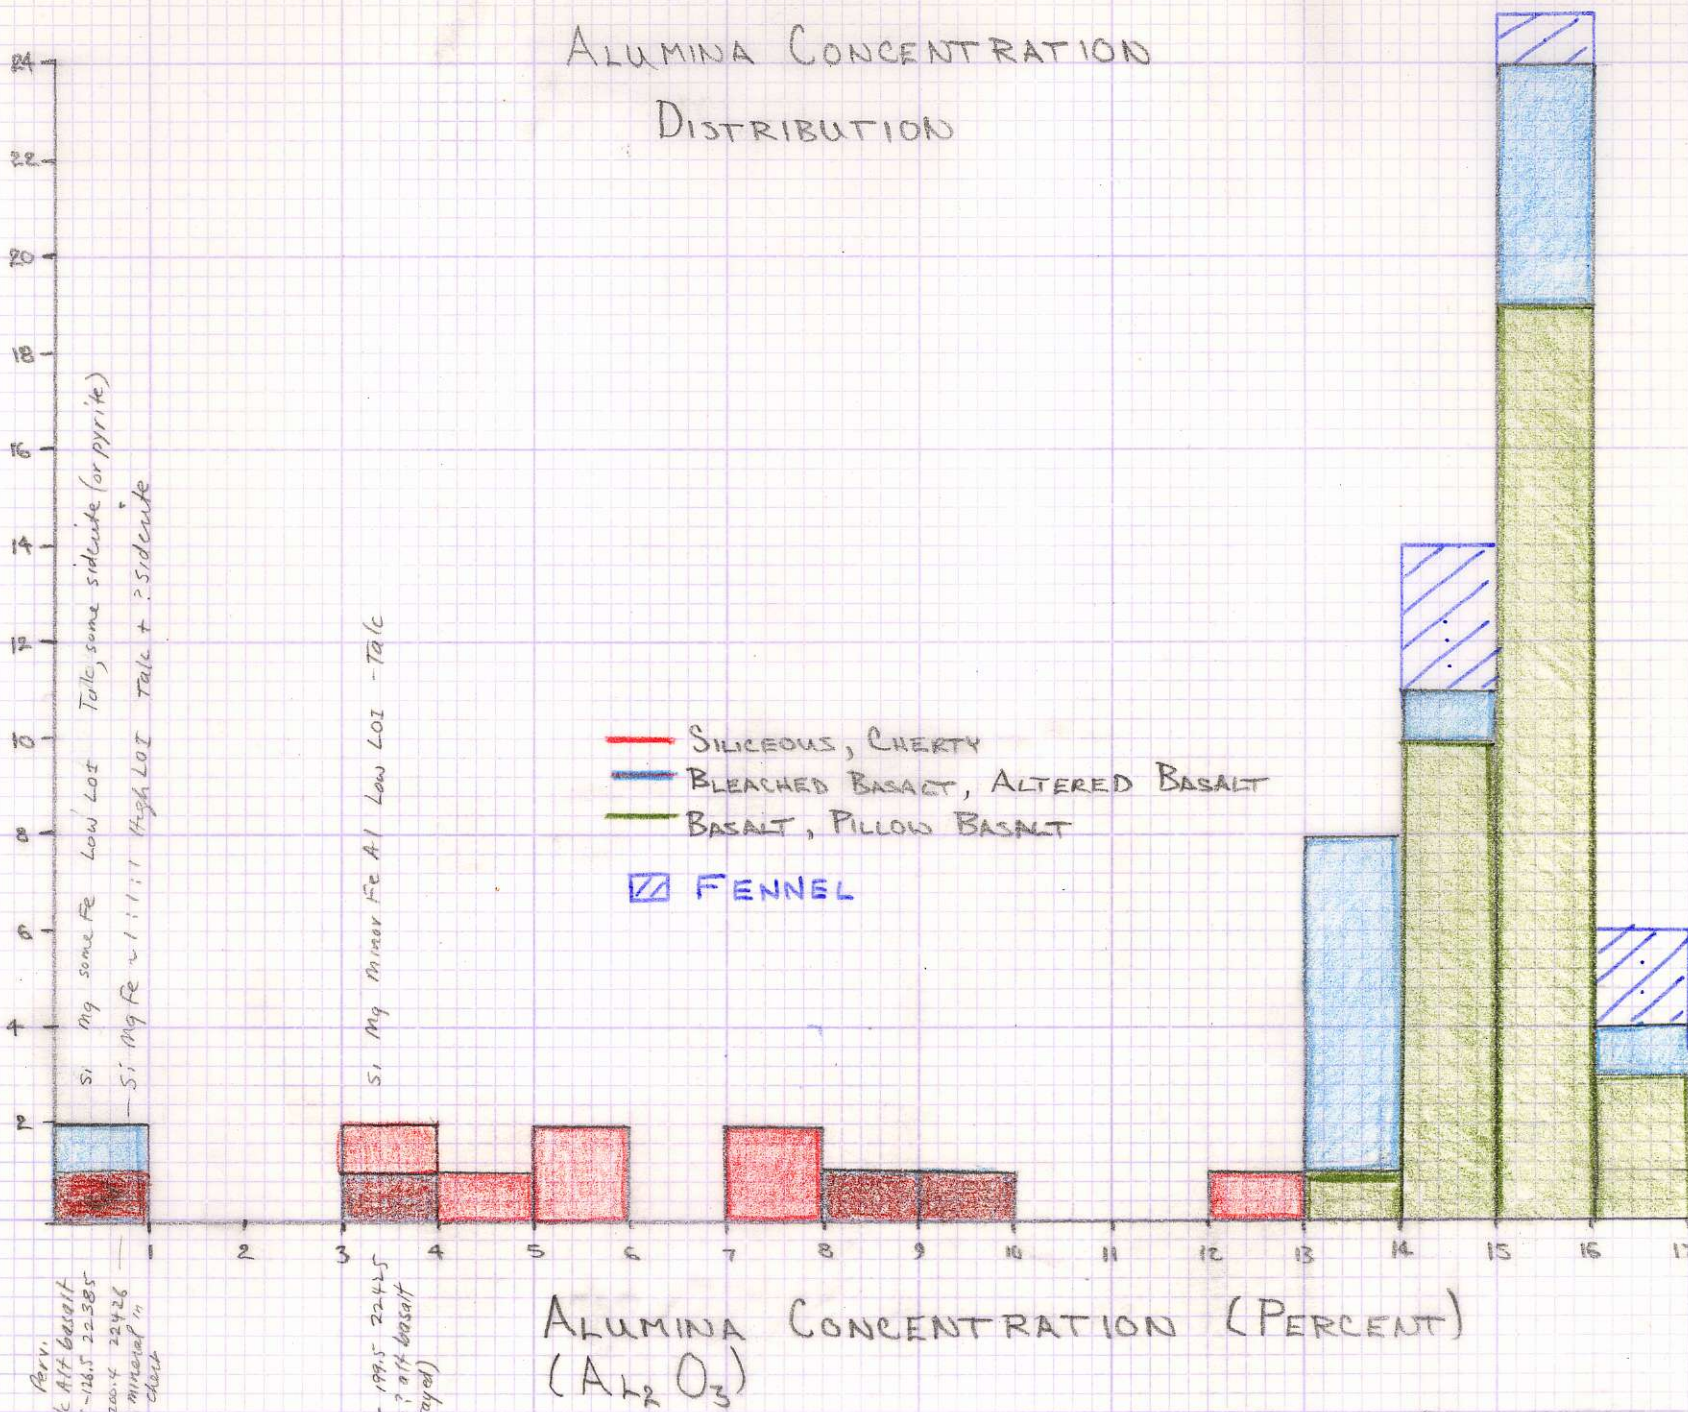 ALUMINA CONCENTRATION
DISTRIBUTION
24
22
20
18
16
14
12
10
8
6
4
2
Si Mg some Fe Low LOI Talc, some siderite (or pyrite)
Si Mg Fe ~ 1:1:1 High LOI Talc + ? siderite
Si Mg minor Fe Al Low LOI - Talc
SILICEOUS, CHERTY
BLEACHED BASALT, ALTERED BASALT
BASALT, PILLOW BASALT
FENNEL
1 2 3 4 5 6 7 8 9 10 11 12 13 14 15 16 17
Perv.
Alt basalt
-126.5 22385
200.4 22426
mineral in
chert
199.5 22425
? alt basalt
ALUMINA CONCENTRATION (PERCENT)
(AL2 O3)